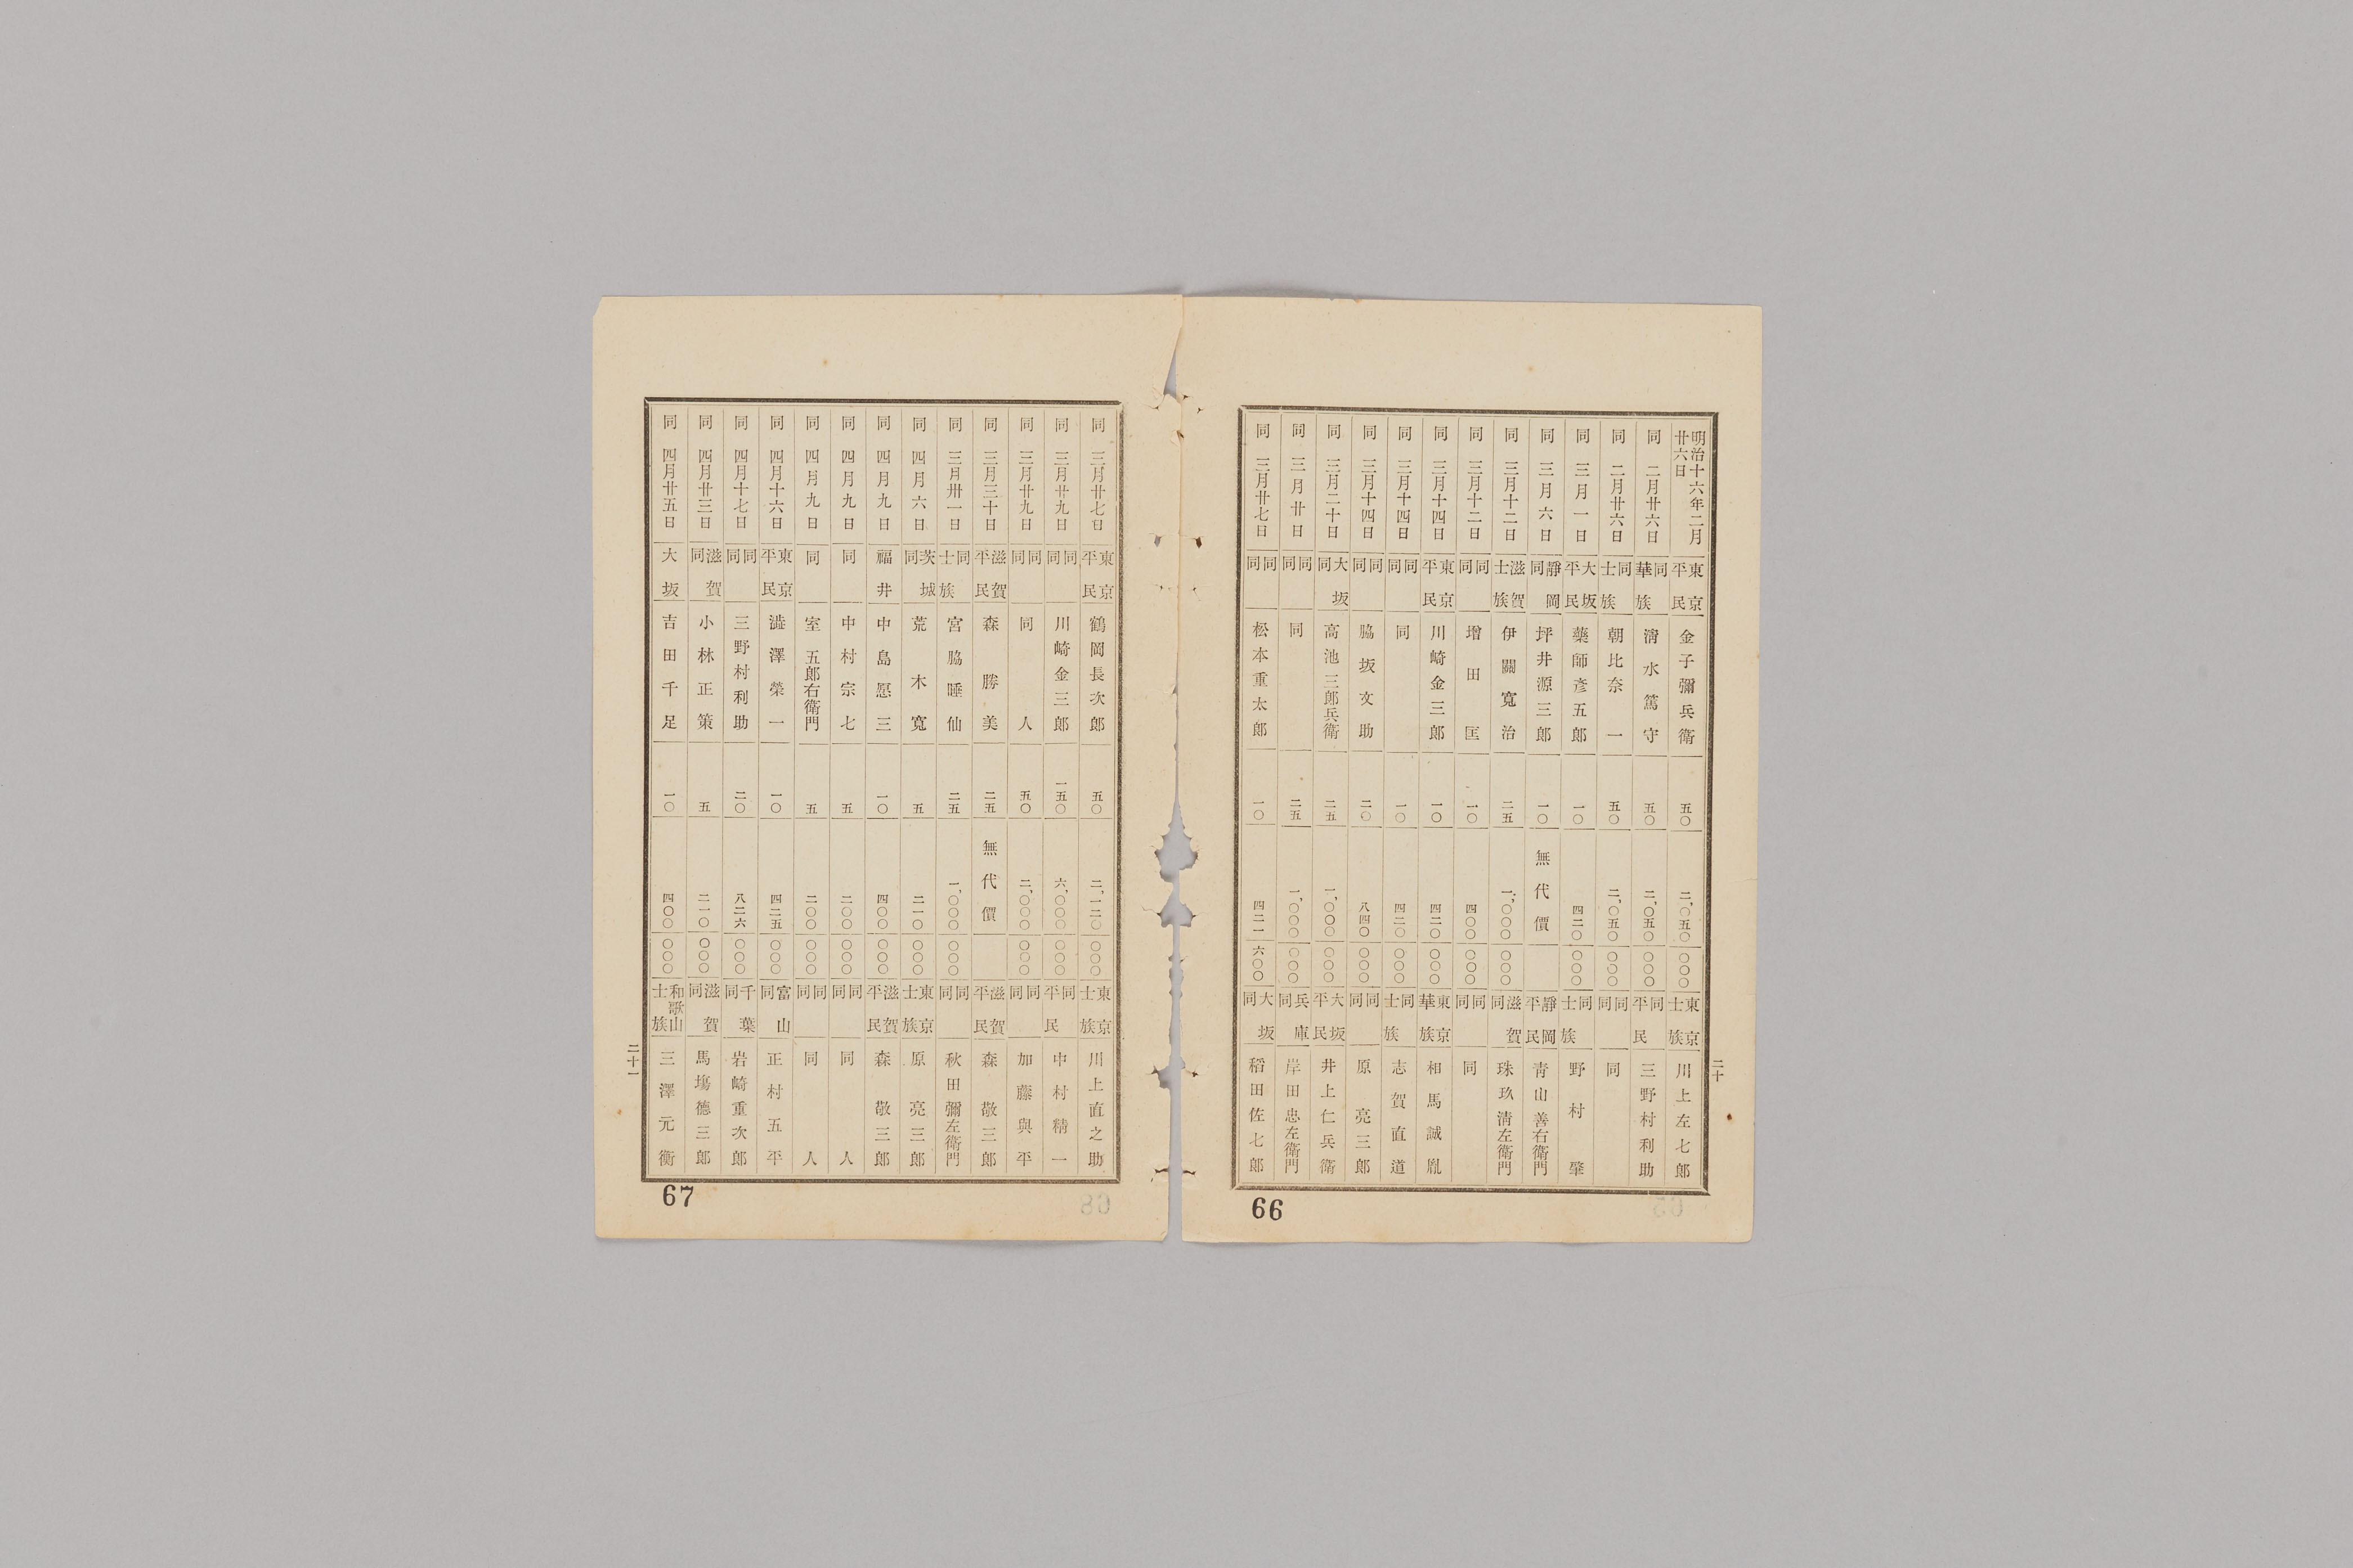 明治十六年二月廿六日 東京平民 金子彌兵衛 五〇 二,〇五〇 〇〇〇 東京士族 川上左七郎
同 二月廿六日 同華族 淸水篤守 五〇 二,〇五〇 〇〇〇 同平民 三野村利助
同 二月廿六日 同士族 朝比奈一 五〇 二,〇五〇 〇〇〇 同同 同
同 三月一日 大坂平民 藥師彥五郎 一〇 四二〇 〇〇〇 同士族 野村肇
同 三月六日 靜岡同 坪井源三郎 一〇 無代價 靜岡平民 靑山善右衛門
同 三月十二日 滋賀士族 伊關寬治 二五 一,〇〇〇 〇〇〇 滋賀同 珠玖淸左衛門
同 三月十二日 同同 增田匡 一〇 四〇〇 〇〇〇 同同 同
同 三月十四日 東京平民 川崎金三郎 一〇 四二〇 〇〇〇 東京華族 相馬誠胤
同 三月十四日 同同 同 一〇 四二〇 〇〇〇 同士族 志賀直道
同 三月十四日 同同 脇坂文助 二〇 八四〇 〇〇〇 同同 原亮三郎
同 三月二十日 大坂同 高池三郎兵衛 二五 一,〇〇〇 〇〇〇 大坂平民 井上仁兵衛
同 三月廿日 同同 同 二五 一,〇〇〇 〇〇〇 兵庫同 岸田忠左衛門
同 三月廿七日 同同 松本重太郎 一〇 四二一 六〇〇 大坂同 稻田佐七郎
二十
66
同 三月廿七日 東京平民 鶴岡長次郎 五〇 二,一二〇 〇〇〇 東京士族 川上直之助
同 三月廿九日 同同 川崎金三郎 一五〇 六,〇〇〇 〇〇〇 同平民 中村精一
同 三月廿九日 同同 同人 五〇 二,〇〇〇 〇〇〇 同同 加藤與平
同 三月三十日 滋賀平民 森勝美 二五 無代價 滋賀平民 森敬三郎
同 三月卅一日 同士族 宮脇睡仙 二五 一,〇〇〇 〇〇〇 同同 秋田彌左衛門
同 四月六日 茨城同 荒木寬 五 二一〇 〇〇〇 東京士族 原亮三郎
同 四月九日 福井 中島愿三 一〇 四〇〇 〇〇〇 滋賀平民 森敬三郎
同 四月九日 同 中村宗七 五 二〇〇 〇〇〇 同同 同人
同 四月九日 同 室五郎右衛門 五 二〇〇 〇〇〇 同同 同人
同 四月十六日 東京平民 澁澤榮一 一〇 四二五 〇〇〇 富山同 正村五平
同 四月十七日 同同 三野村利助 二〇 八二六 〇〇〇 千葉同 岩崎重次郎
同 四月廿三日 滋賀同 小林正策 五 二一〇 〇〇〇 滋賀同 馬塲德三郎
同 四月廿五日 大坂 吉田千足 一〇 四〇〇 〇〇〇 和歌山士族 三澤元衡
二十一
67